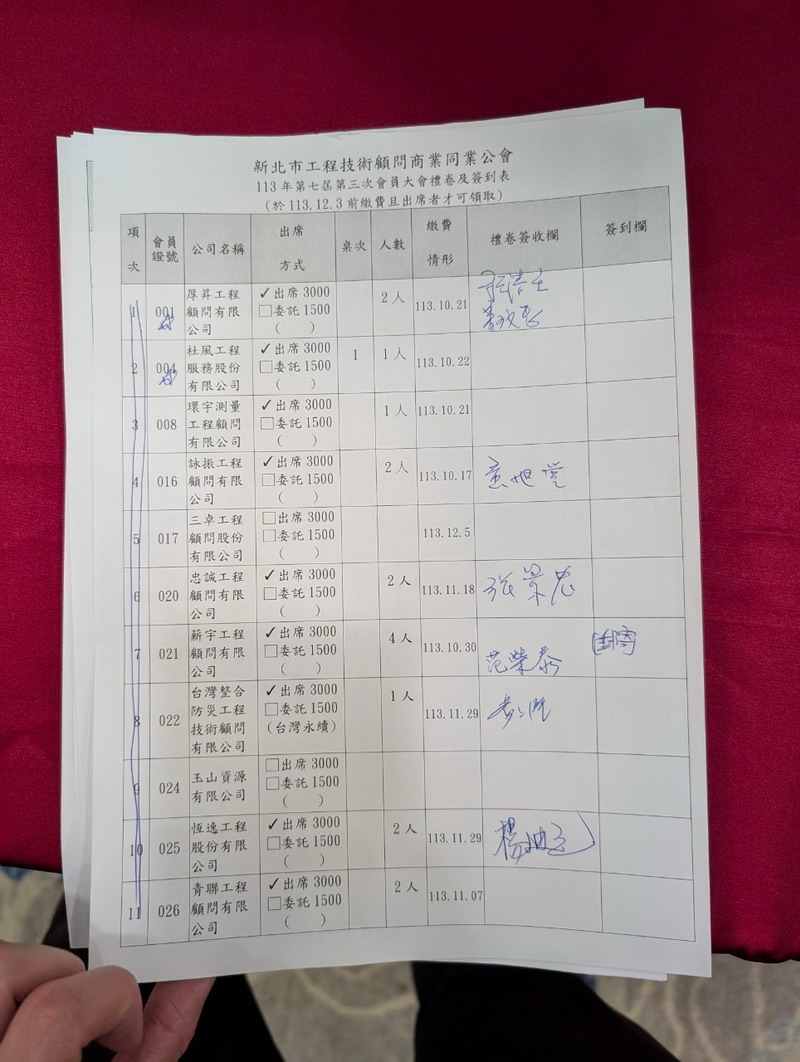 新北市工程技術顧問商業同業公會
113 年第七屆第三次會員大會禮卷及簽到表
(於 113.12.3 前繳費且出席者才可領取)
項次 會員證號 公司名稱 出席方式 桌次 人數 繳費情形 禮卷簽收欄 簽到欄
1 001 厚昇工程顧問有限公司 ✓出席 3000 □委託 1500 ( ) 2 人 113.10.21
2 004 杜風工程服務股份有限公司 ✓出席 3000 □委託 1500 ( ) 1 1 人 113.10.22
3 008 環宇測量工程顧問有限公司 ✓出席 3000 □委託 1500 ( ) 1 人 113.10.21
4 016 詠振工程顧問有限公司 ✓出席 3000 □委託 1500 ( ) 2 人 113.10.17
5 017 三卓工程顧問股份有限公司 □出席 3000 □委託 1500 ( ) 113.12.5
6 020 忠誠工程顧問有限公司 ✓出席 3000 □委託 1500 ( ) 2 人 113.11.18 張景忠
7 021 薪宇工程顧問有限公司 ✓出席 3000 □委託 1500 ( ) 4 人 113.10.30 范榮泰
8 022 台灣整合防災工程技術顧問有限公司 ✓出席 3000 □委託 1500 (台灣永續) 1 人 113.11.29
9 024 玉山資源有限公司 □出席 3000 □委託 1500 ( )
10 025 恆逸工程股份有限公司 ✓出席 3000 □委託 1500 ( ) 2 人 113.11.29
11 026 青聯工程顧問有限公司 ✓出席 3000 □委託 1500 ( ) 2 人 113.11.07